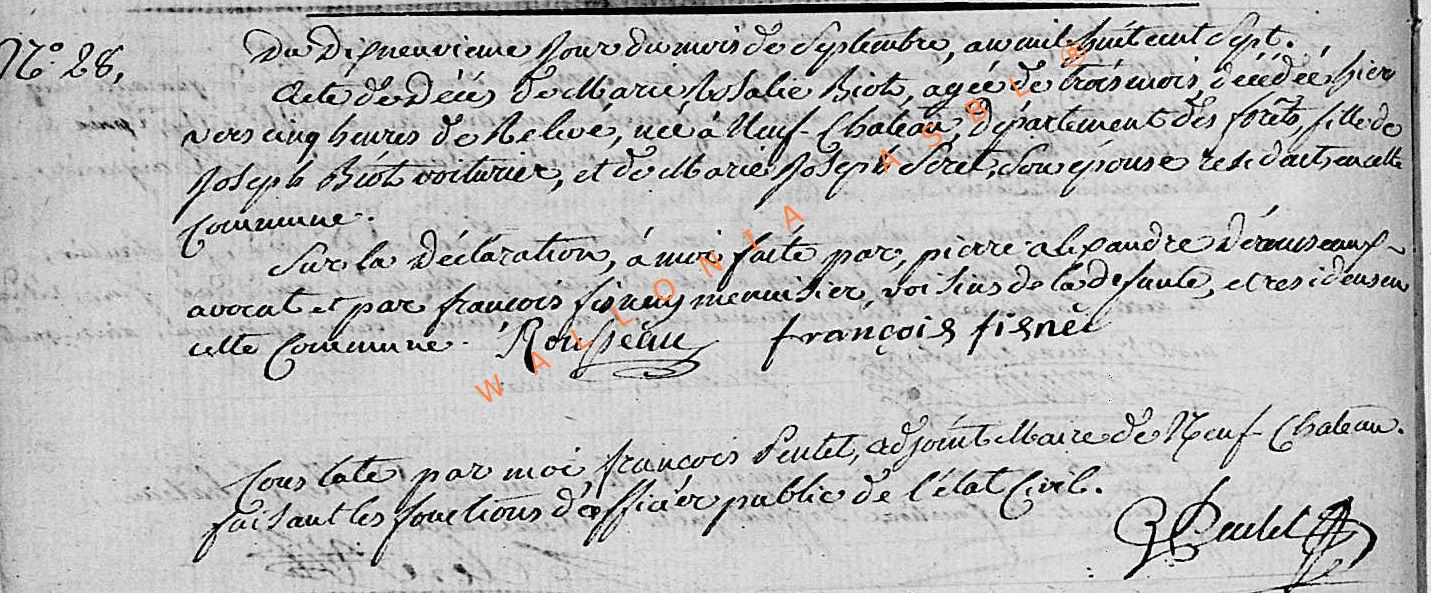 N.º 28,
Du Dixneuvieme Jour du mois de Septembre, an mil huit cent Sept.
Acte de Décès de Marie Rosalie Biot, agée de trois mois, décédée hier
vers cinq heures de Relevé, née à Neuf-Chateau, département des forêts, fille de
Joseph Biot voiturier, et de Marie Joseph Peret, Son épouse residants en cette
Commune.
Sur la déclaration, à moi faite par, pierre alexandre
avocat et par françois menuisier, voisins de la défunte, et residens en
cette Commune. Rousseau françois fisnet
Constaté par moi françois Pentet, adjoint Maire de Neuf-Chateau.
faisant les fonctions d'officier public de l'état Civil.
WALLONIA ASBL ®